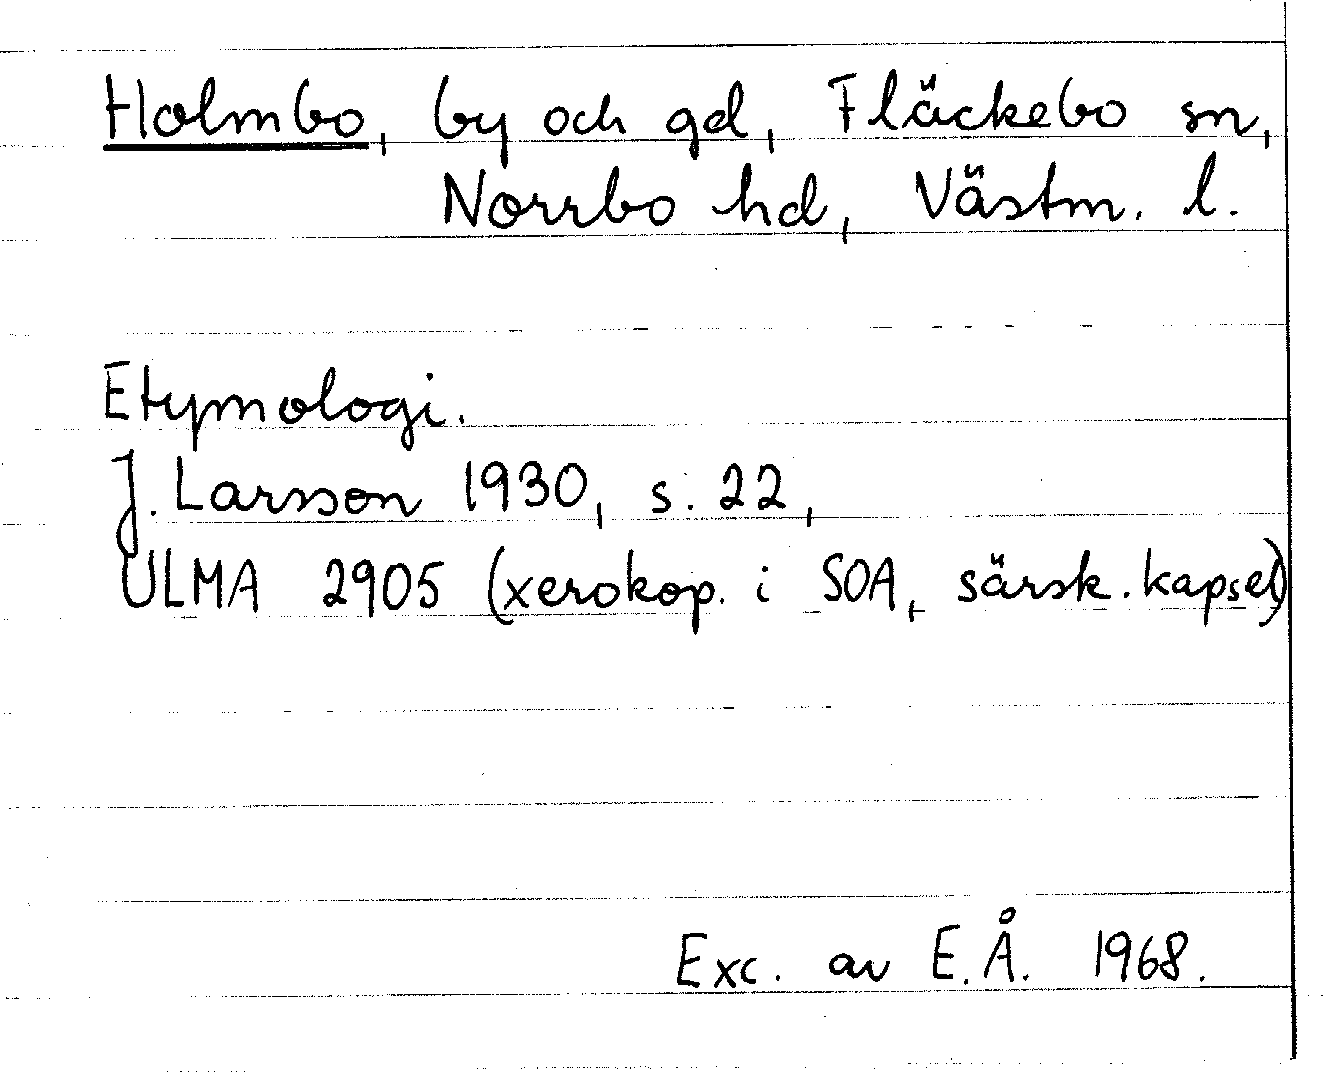 Holmbo, by och gd, Fläckebo sn,
Norrbo hd, Västm. l.
Etymologi.
J. Larsson 1930, s. 22,
ULMA 2905 (xerokop. i SOA, särsk. kapsel)
Exc. av E.Å. 1968.